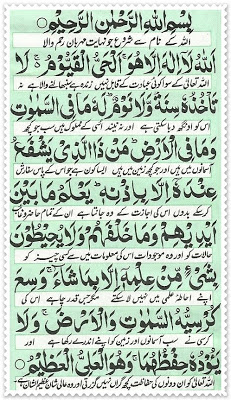 بِسْمِ اللهِ الرَّحْمٰنِ الرَّحِیْمِ
اللہ کے نام سے شروع جو نہایت مہربان رحم والا
اَللهُ لَاۤ اِلٰهَ اِلَّا هُوَۚ اَلْحَیُّ الْقَیُّوْمُ ۚ لَا
اللہ تعالیٰ کے سوا کوئی عبادت کے قابل نہیں زندہ ہے سنبھالنے والا ہے نہ
تَاْخُذُهٗ سِنَةٌ وَّلَا نَوْمٌ ؕ لَهٗ مَا فِی السَّمٰوٰتِ
اس کو اونگھ دبا سکتی ہے اور نہ نیند اسی کے مملوک ہیں سب جو کچھ
وَمَا فِی الْاَرْضِ ؕ مَنْ ذَا الَّذِیْ یَشْفَعُ
آسمانوں میں ہیں اور جو کچھ زمین میں ہیں ایسا کون ہے جو اس کے پاس سفارش
عِنْدَهٗۤ اِلَّا بِاِذْنِهٖ ؕ یَعْلَمُ مَا بَیْنَ
کر سکے بدوں اس کی اجازت کے وہ جانتا ہے ان کے تمام حاضر و غائب
اَیْدِیْهِمْ وَمَا خَلْفَهُمْ ۚ وَلَا یُحِیْطُوْنَ
حالات کو اور وہ موجودات اس کی معلومات میں سے کسی چیز کو
بِشَیْءٍ مِّنْ عِلْمِهٖۤ اِلَّا بِمَا شَآءَ ۚ وَسِعَ
اپنے احاطہ علمی میں نہیں لا سکتے مگر جس قدر چاہے اس کی
كُرْسِیُّهُ السَّمٰوٰتِ وَالْاَرْضَ ۚ وَلَا
کرسی نے سب آسمانوں اور زمین کو اپنے اندر لے رکھا ہے اور
یَـُٔوْدُهٗ حِفْظُهُمَا ۚ وَهُوَ الْعَلِیُّ الْعَظِیْمُ
اللہ تعالیٰ کو ان دونوں کی حفاظت کچھ گراں نہیں گزرتی اور وہ عالی شان عظیم الشان ہے